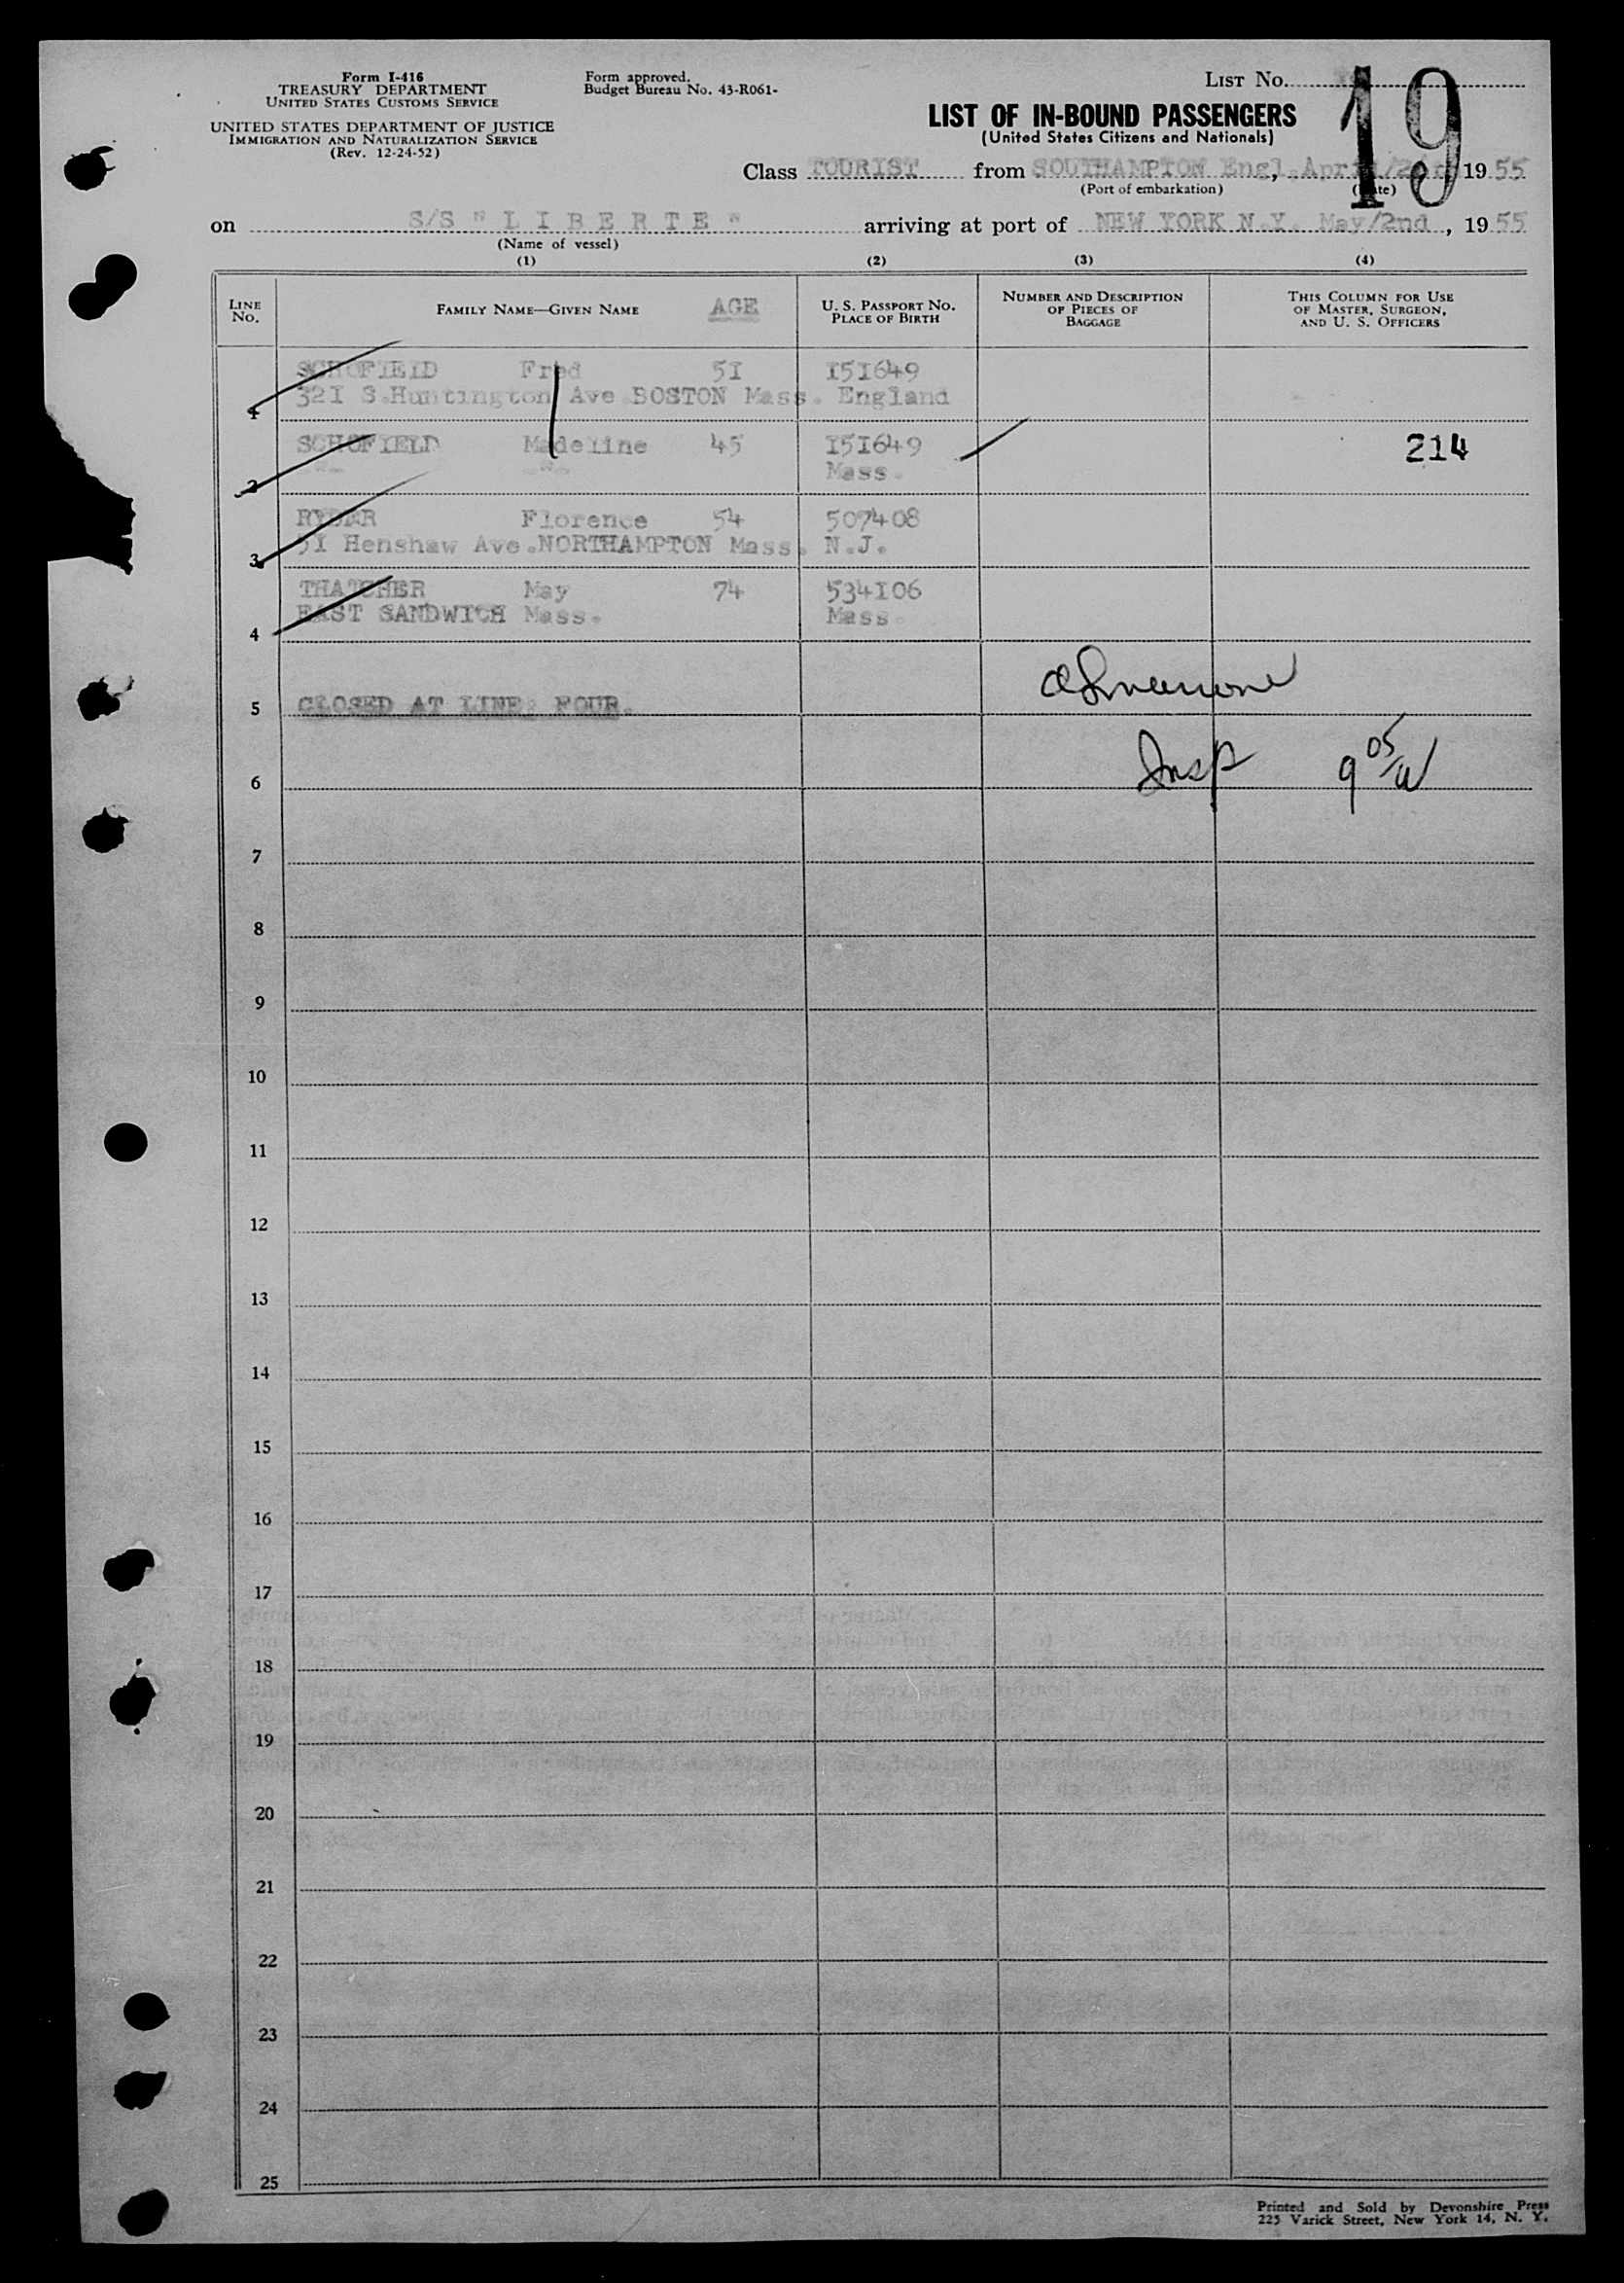 Form I-416
TREASURY DEPARTMENT
UNITED STATES CUSTOMS SERVICE
UNITED STATES DEPARTMENT OF JUSTICE
IMMIGRATION AND NATURALIZATION SERVICE
(Rev. 12-24-52)
Form approved.
Budget Bureau No. 43-R061-
LIST No. 19
LIST OF IN-BOUND PASSENGERS
(United States Citizens and Nationals)
Class TOURIST from SOUTHAMPTON Engl., 1955
(Port of embarkation)
on S/S " L I B E R T E " arriving at port of NEW YORK N.Y. May/2nd, 1955
(Name of vessel)
(1) (2) (3) (4)
LINE No. FAMILY NAME—GIVEN NAME AGE U. S. PASSPORT No. PLACE OF BIRTH NUMBER AND DESCRIPTION OF PIECES OF BAGGAGE THIS COLUMN FOR USE OF MASTER, SURGEON, AND U. S. OFFICERS
SCHOFIELD Fred 51 151649
1 321 S.Huntington Ave BOSTON Mass. England
SCHOFIELD Madeline 45 151649 214
2 -"- -"- Mass.
RYDER Florence 54 507408
3 51 Henshaw Ave.NORTHAMPTON Mass. N.J.
THATCHER May 74 534106
EAST SANDWICH Mass. Mass.
4
5 CLOSED AT LINE: FOUR.
Insp 9 05/
6
7
8
9
10
11
12
13
14
15
16
17
18
19
20
21
22
23
24
25
Printed and Sold by Devonshire Press
225 Varick Street, New York 14, N. Y.